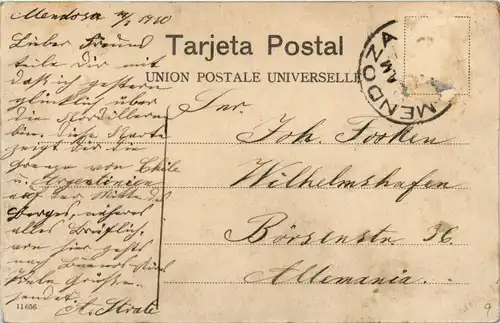 Mendosa 19/1 1910
Lieber Freund
teile Dir mit
daß ich gestern
glücklich über
die Kordilleren
bin. Diese Karte
zeigt Dir die
Grenze von Chile
u. Argentinien
auf der Mitte des
Berges, näheres
alles brieflich,
von hier gehts
nach Buenos-Aires
Viele Grüsse
sendet
Tarjeta Postal
UNION POSTALE UNIVERSELLE
MENDOZA
AM
Joh. Focken
Wilhelmshafen
Börsenstr 36
Allemania.
11656
9